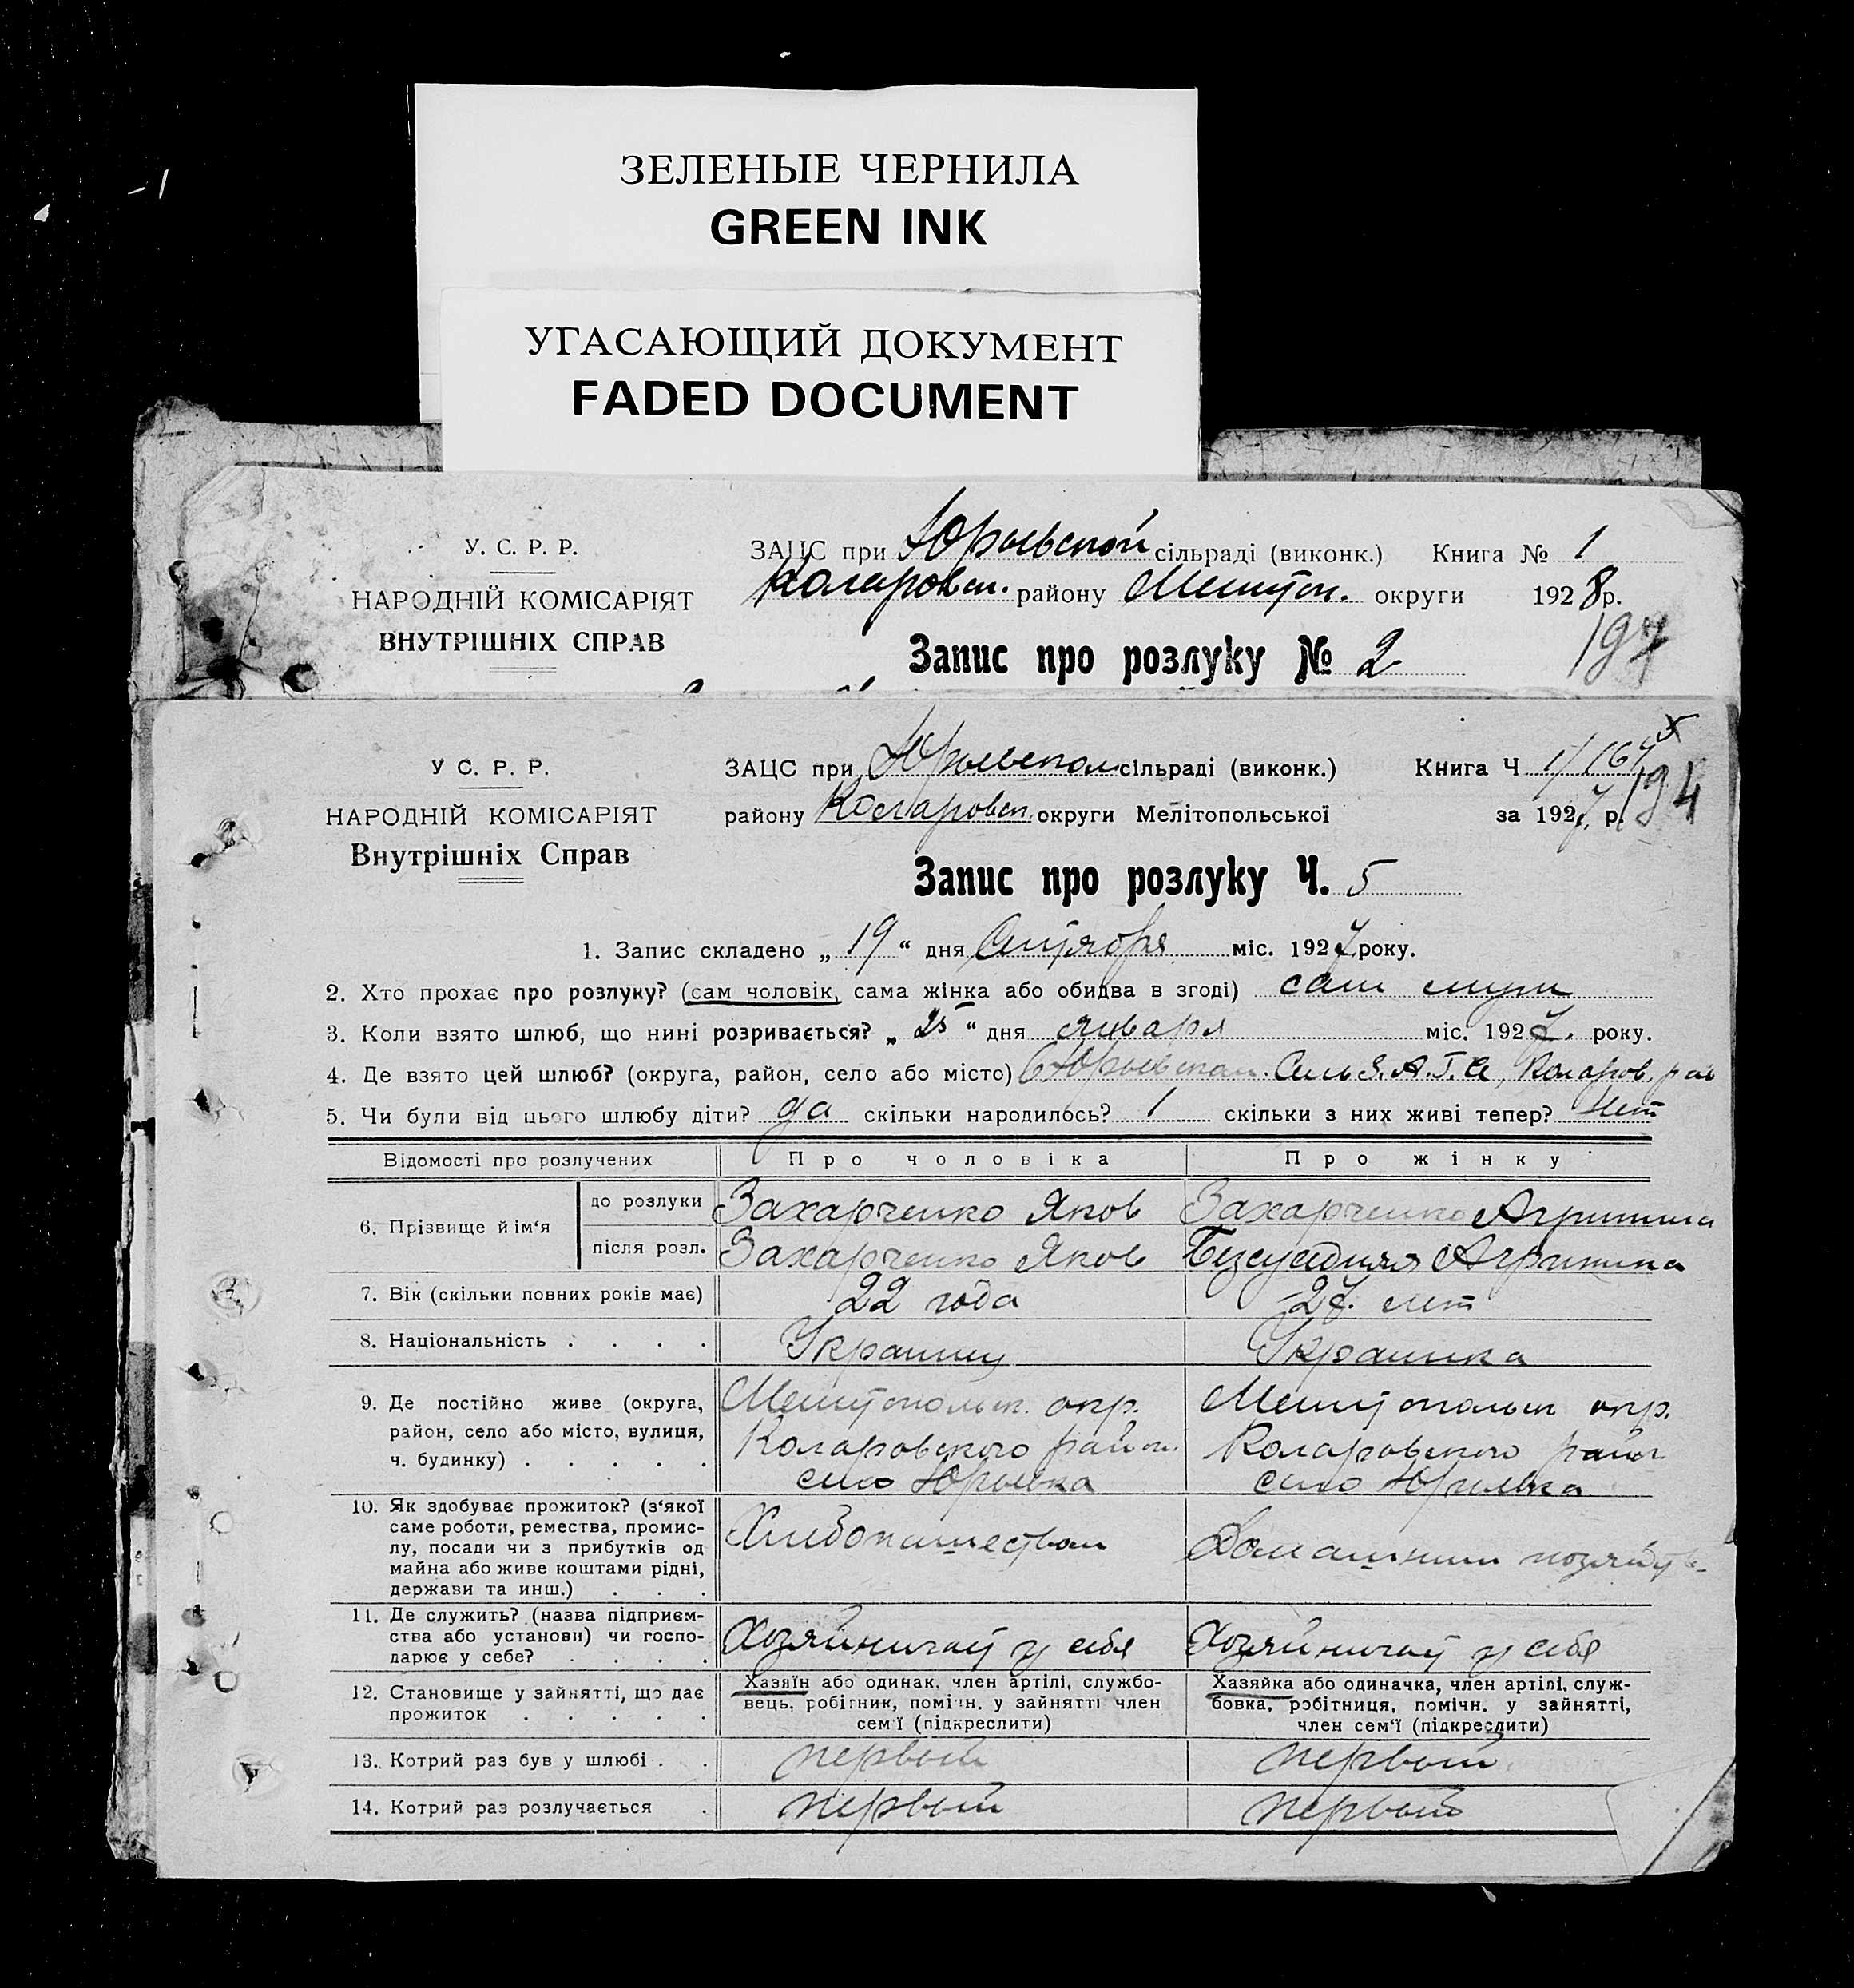 ЗЕЛЕНЫЕ ЧЕРНИЛА
GREEN INK
УГАСАЮЩИЙ ДОКУМЕНТ
FADED DOCUMENT
У. С. Р. Р.
НАРОДНІЙ КОМІСАРІЯТ
ВНУТРІШНІХ СПРАВ
ЗАЦС при Юрьевской сільраді (виконк.) Книга № 1
Коларовск. району Мелитоп. округи 1928 р.
Запис про розлуку № 2
197
У С. Р. Р.
НАРОДНІЙ КОМІСАРІЯТ
Внутрішніх Справ
ЗАЦС при Юрьевском сільраді (виконк.) Книга Ч 1/164
району Коларовск. округи Мелітопольської за 1927 р. 194
Запис про розлуку Ч. 5
1. Запис складено „ 19 “ дня Октября міс. 1927 року.
2. Хто прохає про розлуку? (сам чоловік, сама жінка або обидва в згоді) сам муж
3. Коли взято шлюб, що нині розривається? „ 25 “ дня января міс. 1927. року.
4. Де взято цей шлюб? (округа, район, село або місто) Юрьевском. Сель З.А.Г.С, Коларов. рай
5. Чи були від цього шлюбу діти? да скільки народилось? 1 скільки з них живі тепер? нет
Відомості про розлучених Про чоловіка Про жінку
6. Прізвище й ім‘я
до розлуки Захарченко Яков Захарченко Агрипина
після розл. Захарченко Яков Безсуедняя Агрипина
7. Вік (скільки повних років має) 22 года 27. лет
8. Національність . . . . Украинец Украинка
9. Де постійно живе (округа, район, село або місто, вулиця, ч. будинку) . . . . .
Мелитопольск. окр. Мелитопольск окр.
Коларовского район. Коларовского район
село Юрьевка село Юрьевка
10. Як здобуває прожиток? (з‘якої
саме роботи, ремества, промис-
лу, посади чи з прибутків од
майна або живе коштами рідні,
держави та инш.) . . .
Хлебопашеством Домашним хозяйств
11. Де служить? (назва підприєм-
ства або установи) чи госпо-
дарює у себе? . . . .
Хозяйничает у себя Хозяйничает у себя
12. Становище у зайнятті, що дає
прожиток . . . . .
Хазяїн або одинак, член артілі, службо-
вець, робітник, помічн. у зайнятті член
сем‘ї (підкреслити)
Хазяйка або одиначка, член артілі, служ-
бовка, робітниця, помічн. у зайнятті,
член сем‘ї (підкреслити)
13. Котрий раз був у шлюбі . . первый первый
14. Котрий раз розлучається . первый первый